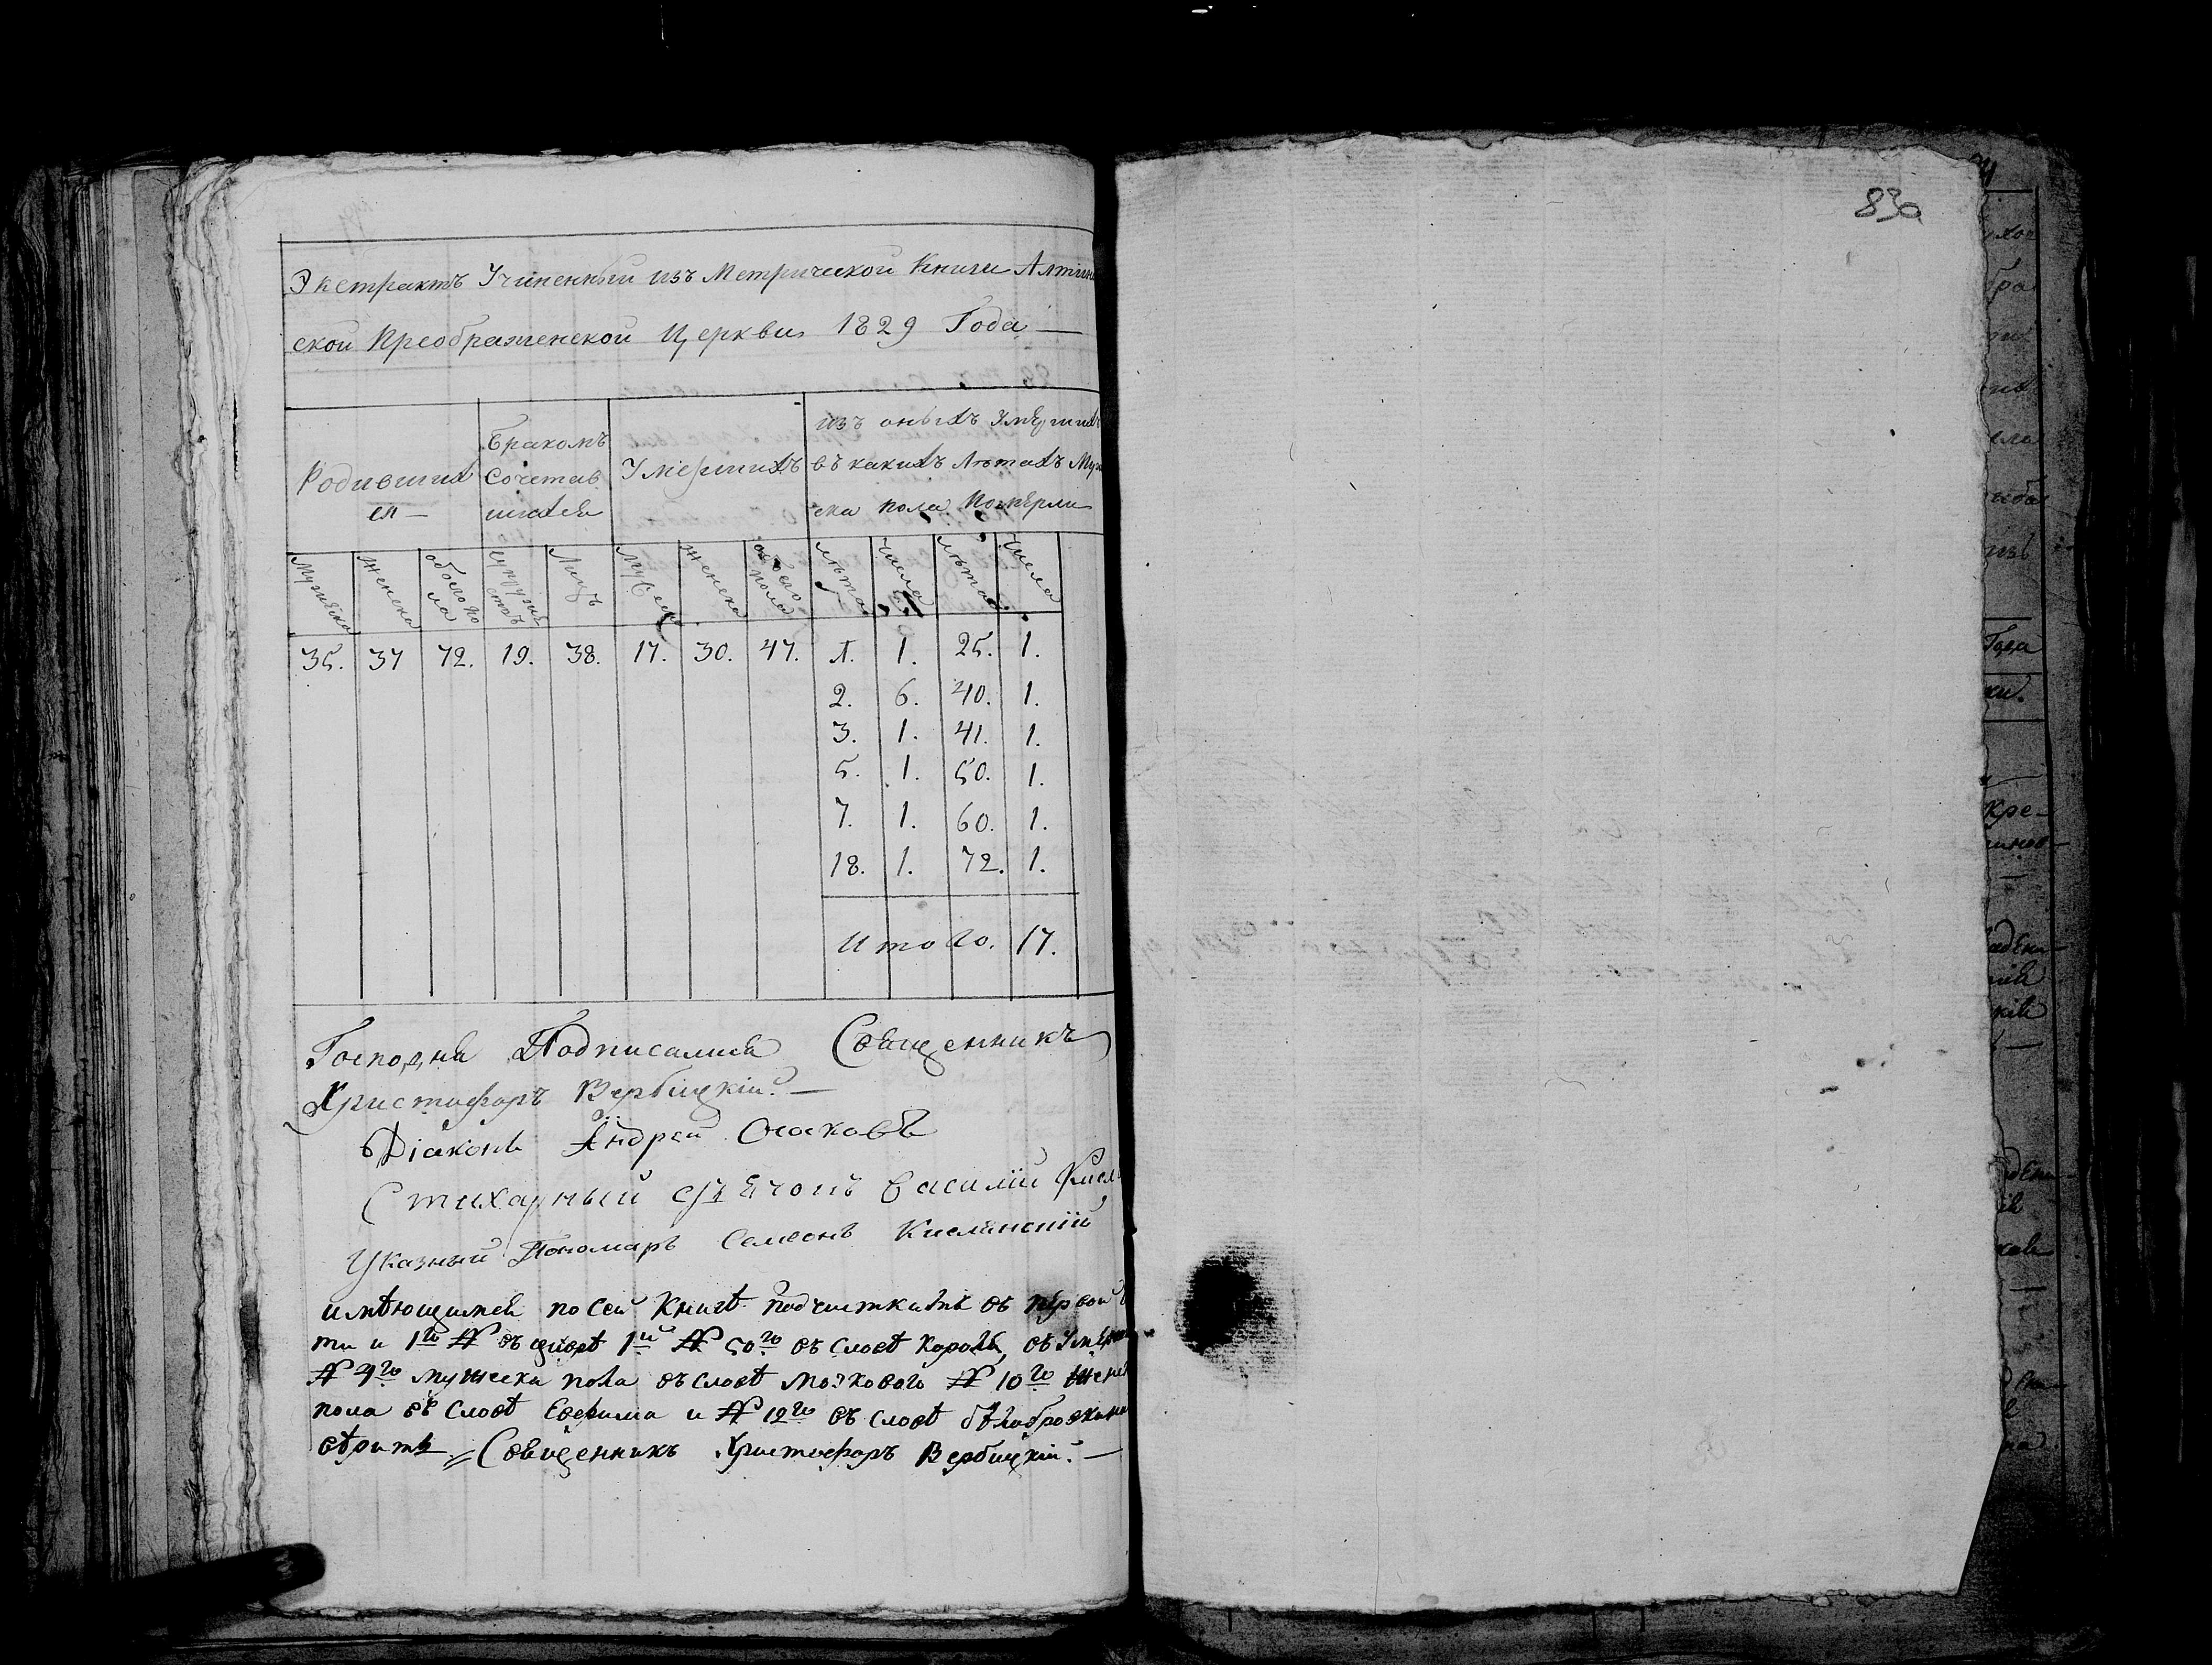 830
Экстрактъ Учиненный изъ Метрической Книги
ской Преображенской Церкви 1829 Года —
Родившихся — Бракомъ Сочетавшихся Умершихъ изъ оныхъ Умершихъ въ какихъ Летахъ Муже
ска пола Померли
Мужеска Женска обоего пола Супружествъ Лицъ Муск Женска обоего пола лета Числа лета Числа
35. 37 72. 19. 38. 17. 30. 47. Л. 1. 25. 1.
2. 6. 40. 1.
3. 1. 41. 1.
5. 1. 50. 1.
7. 1. 60. 1.
18. 1. 72. 1.
Итого. 17.
Подписались Священникъ
Христофоръ Вербицкій. —
Діаконъ Андрей
Стихарный Василій
Указный Пономарь Семеонъ Кислинскій
имѣющимся по сей Книгѣ подчисткамъ въ первой
ти и 1й № въ 1й № 50го въ словѣ Король, въ
№ 4го мужеска пола въ словѣ № 10го
пола въ словѣ Евфима и № 12го въ словѣ
вѣрить Священникъ Христофоръ Вербицкій. —